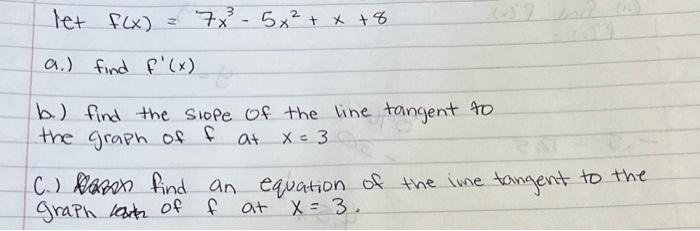 let f(x) = 7x³ - 5x² + x + 8
a.) find f'(x)
b.) find the slope of the line tangent to
the graph of f at x = 3
C.) find an equation of the line tangent to the
graph of f at x = 3.